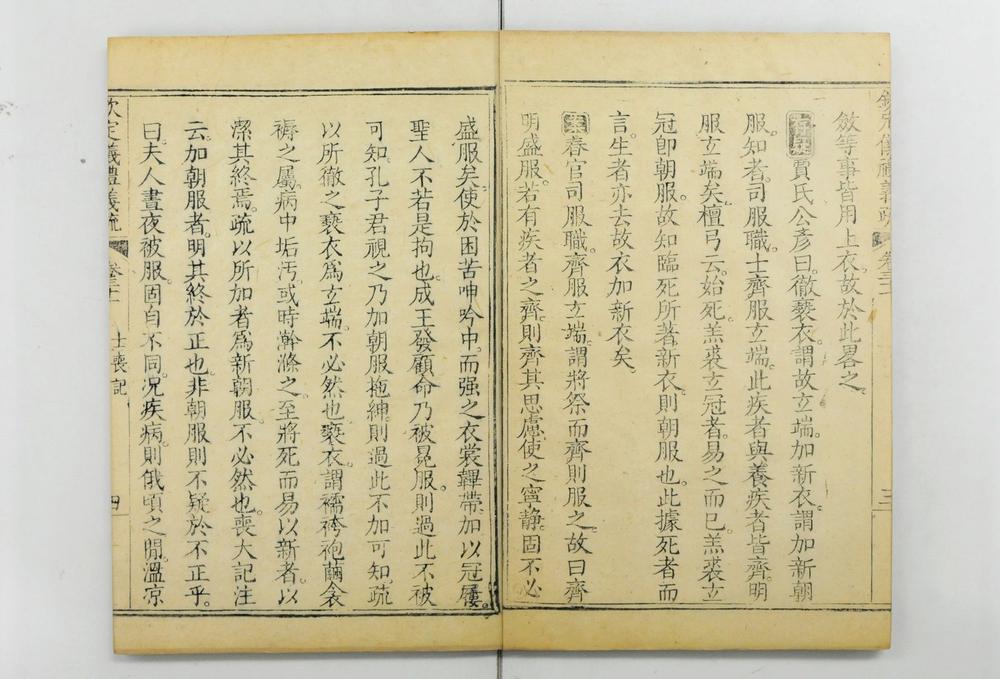 斂等事皆用上衣故於此畧之。
存疑賈氏公彥曰。徹褻衣。謂故玄端。加新衣。謂加新朝
服。知者。司服職。士齊服玄端。此疾者與養疾者皆齊。明
服玄端矣。檀弓云。始死。羔裘玄冠者。易之而已。羔裘玄
冠卽朝服。故知臨死所著新衣。則朝服也。此據死者而
言。生者亦去故衣加新衣矣。
案春官司服職。齊服玄端。謂將祭而齊則服之。故曰齊
明盛服。若有疾者之齊。則齊其思慮使之寧靜。固不必
三
盛服矣。使於困苦呻吟中。而强之衣裳鞸帶。加以冠屨。
聖人不若是拘也。成王發顧命乃被冕服。則過此不被
可知。孔子君視之乃加朝服拖紳。則過此不加可知。疏
以所徹之褻衣爲玄端。不必然也。褻衣。謂襦袴袍繭衾
褥之屬。病中垢汚。或時澣滌之。至將死而易以新者。以
潔其終焉。疏以所加者爲新朝服。不必然也。喪大記注
云。加朝服者。明其終於正也。非朝服則不疑於不正乎。
曰。夫人晝夜被服。固自不同。況疾病。則俄頃之閒。溫凉
欽定義禮義疏
士喪記
四